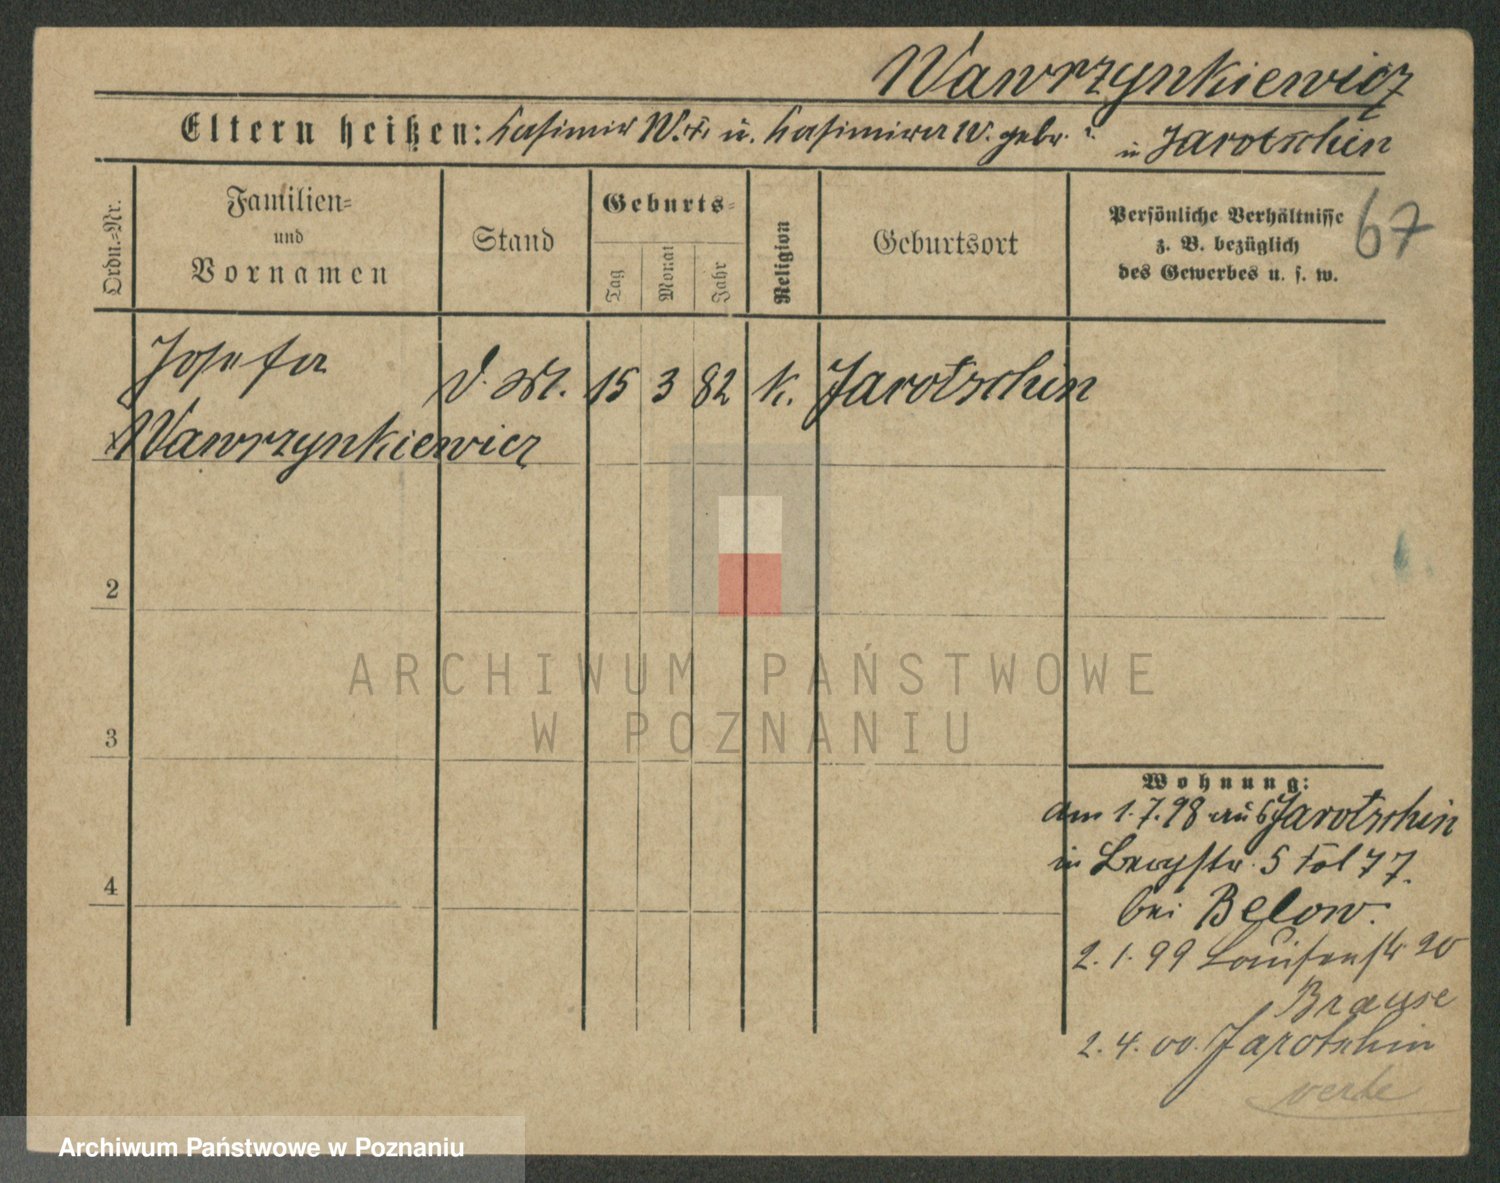 Wawrzynkiewicz
Eltern heißen: Kasimir W. u. Kasimira W. gebr. ? in Jarotschin
Ordn.-Nr.
Familien-
und
Vornamen
Stand
Geburts-
Tag
Monat
Jahr
Religion
Geburtsort
Persönliche Verhältnisse
z. B. bezüglich
des Gewerbes u. s. w.
67
Josefa
Wawrzynkiewicz
15 3 82 k. Jarotschin
2
3
4
ARCHIWUM PAŃSTWOWE
W POZNANIU
Wohnung:
am 1.7.98 aus Jarotschin
in Bergstr. 5 Fol 77.
bei Below.
2.1.99 Louisenstr 20
Brause
2.4.00. Jarotschin
Archiwum Państwowe w Poznaniu